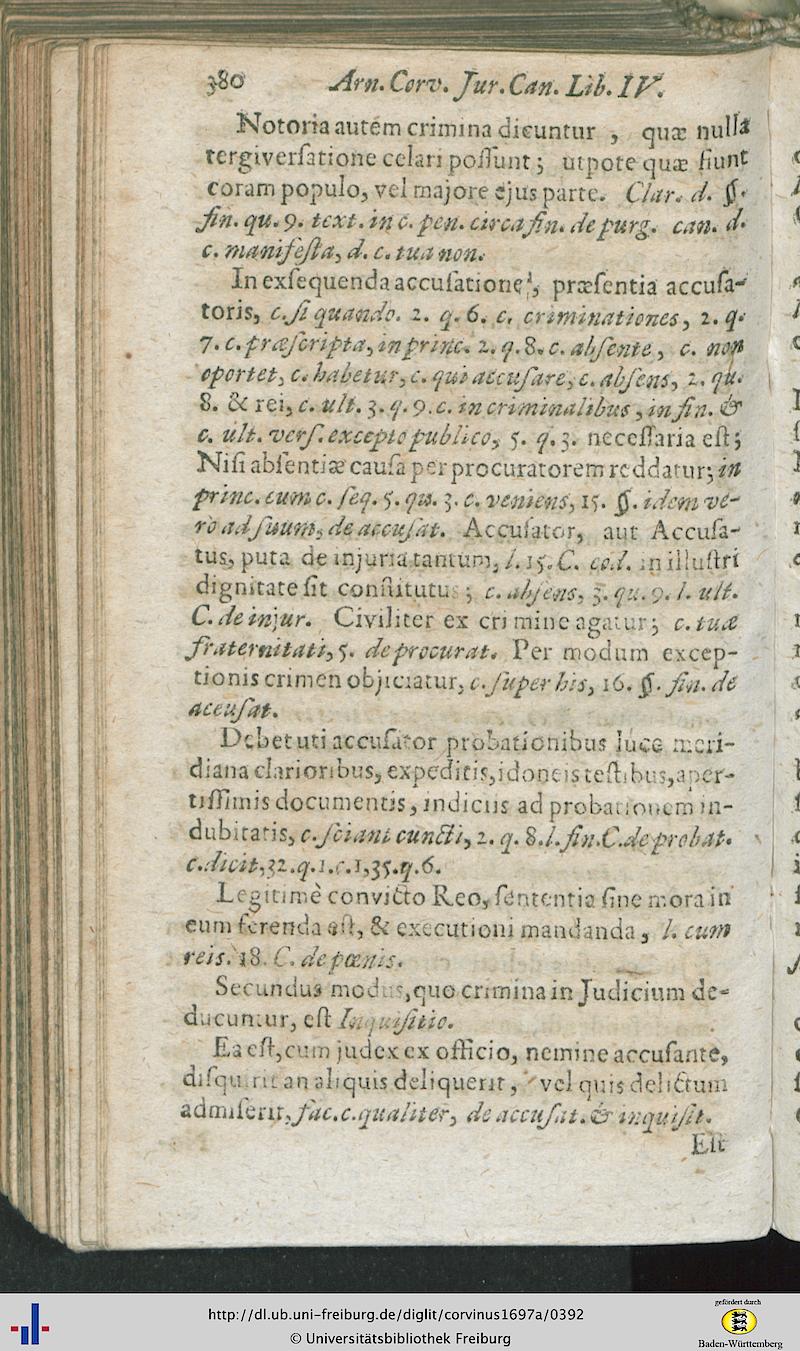 380 Arn. Corv. Jur. Can. Lib. IV.
Notoria autem crimina dicuntur , quæ nulla
tergiverſatione celari poſſunt; utpote quæ fiunt
coram populo, vel majore ejus parte. Clar. d. §.
fin. qu. 9. text. in c. pen. circa fin. de purg. can. d.
c. manifeſta, d. c. tua non.
In exſequenda accuſatione, præſentia accuſa-
toris, c. ſi quando. 2. q. 6. c. criminationes, 2. q.
7. c. præſcripta, in princ. 2. q. 8. c. abſente, c. non
oportet, c. habetur, c. qui accuſare, c. abſens, 2. qu.
8. & rei, c. ult. 3. q. 9. c. in criminalibus, in fin. &
c. ult. verſ. excepto publico, 5. q. 3. neceſſaria eſt;
Niſi abſentiæ cauſa per procuratorem reddatur; in
princ. cum c. ſeq. 5. qu. 3. c. veniens, 15. §. idem ve-
ro ad ſuum, de accuſat. Accuſator, aut Accuſa-
tus, puta de injuria tantum, l. 15. C. eod. in illuſtri
dignitate ſit conſtitutus; c. abſens, 3. qu. 9. l. ult.
C. de injur. Civiliter ex crimine agatur; c. tuæ
fraternitati, 5. de procurat. Per modum excep-
tionis crimen objiciatur, c. ſuper his, 16. §. fin. de
accuſat.
Debet uti accuſator probationibus luce meri-
diana clarioribus, expeditis, idoneis teſtibus, aper-
tiſſimis documentis, indiciis ad probationem in-
dubitatis, c. ſciant cuncti, 2. q. 8. l. fin. C. de probat.
c. dicit, 32. q. 1. c. 1, 35. q. 6.
Legitimè convicto Reo, ſententia ſine mora in
eum ferenda eſt, & executioni mandanda, l. cum
reis. 18. C. de pœnis.
Secundus modus, quo crimina in Judicium de-
ducuntur, eſt Inquiſitio.
Ea eſt, cum judex ex officio, nemine accuſante,
diſquirit an aliquis deliquerit, vel quis delictum
admiſerit, fac. c. qualiter, de accuſat. & inquiſit.
Eſt
http://dl.ub.uni-freiburg.de/diglit/corvinus1697a/0392
© Universitätsbibliothek Freiburg
gefördert durch
Baden-Württemberg